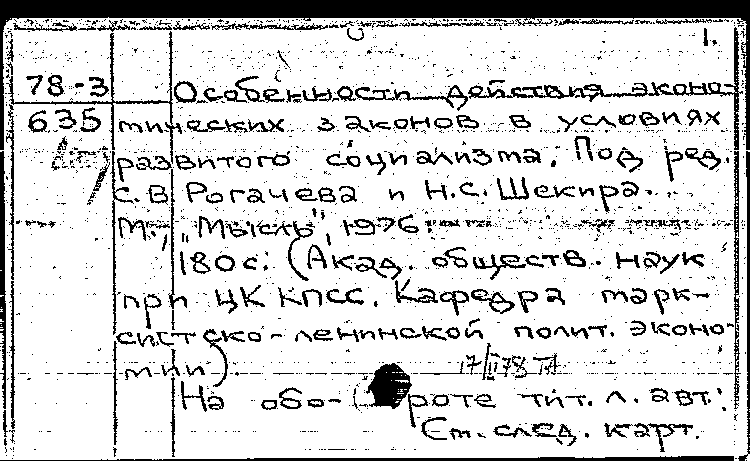 1.
78-3 Особенности действия эконо-
635 мических законов в условиях
развитого социализма. Под ред.
С.В. Рогачева и Н.С. Шекира.
М., "Мысль", 1976.
180 с. (Акад. обществ. наук
при ЦК КПСС. Кафедра марк-
систско-ленинской полит. эконо-
мии).
17/II 78
На обо- роте тит. л. авт.:
См. след. карт.